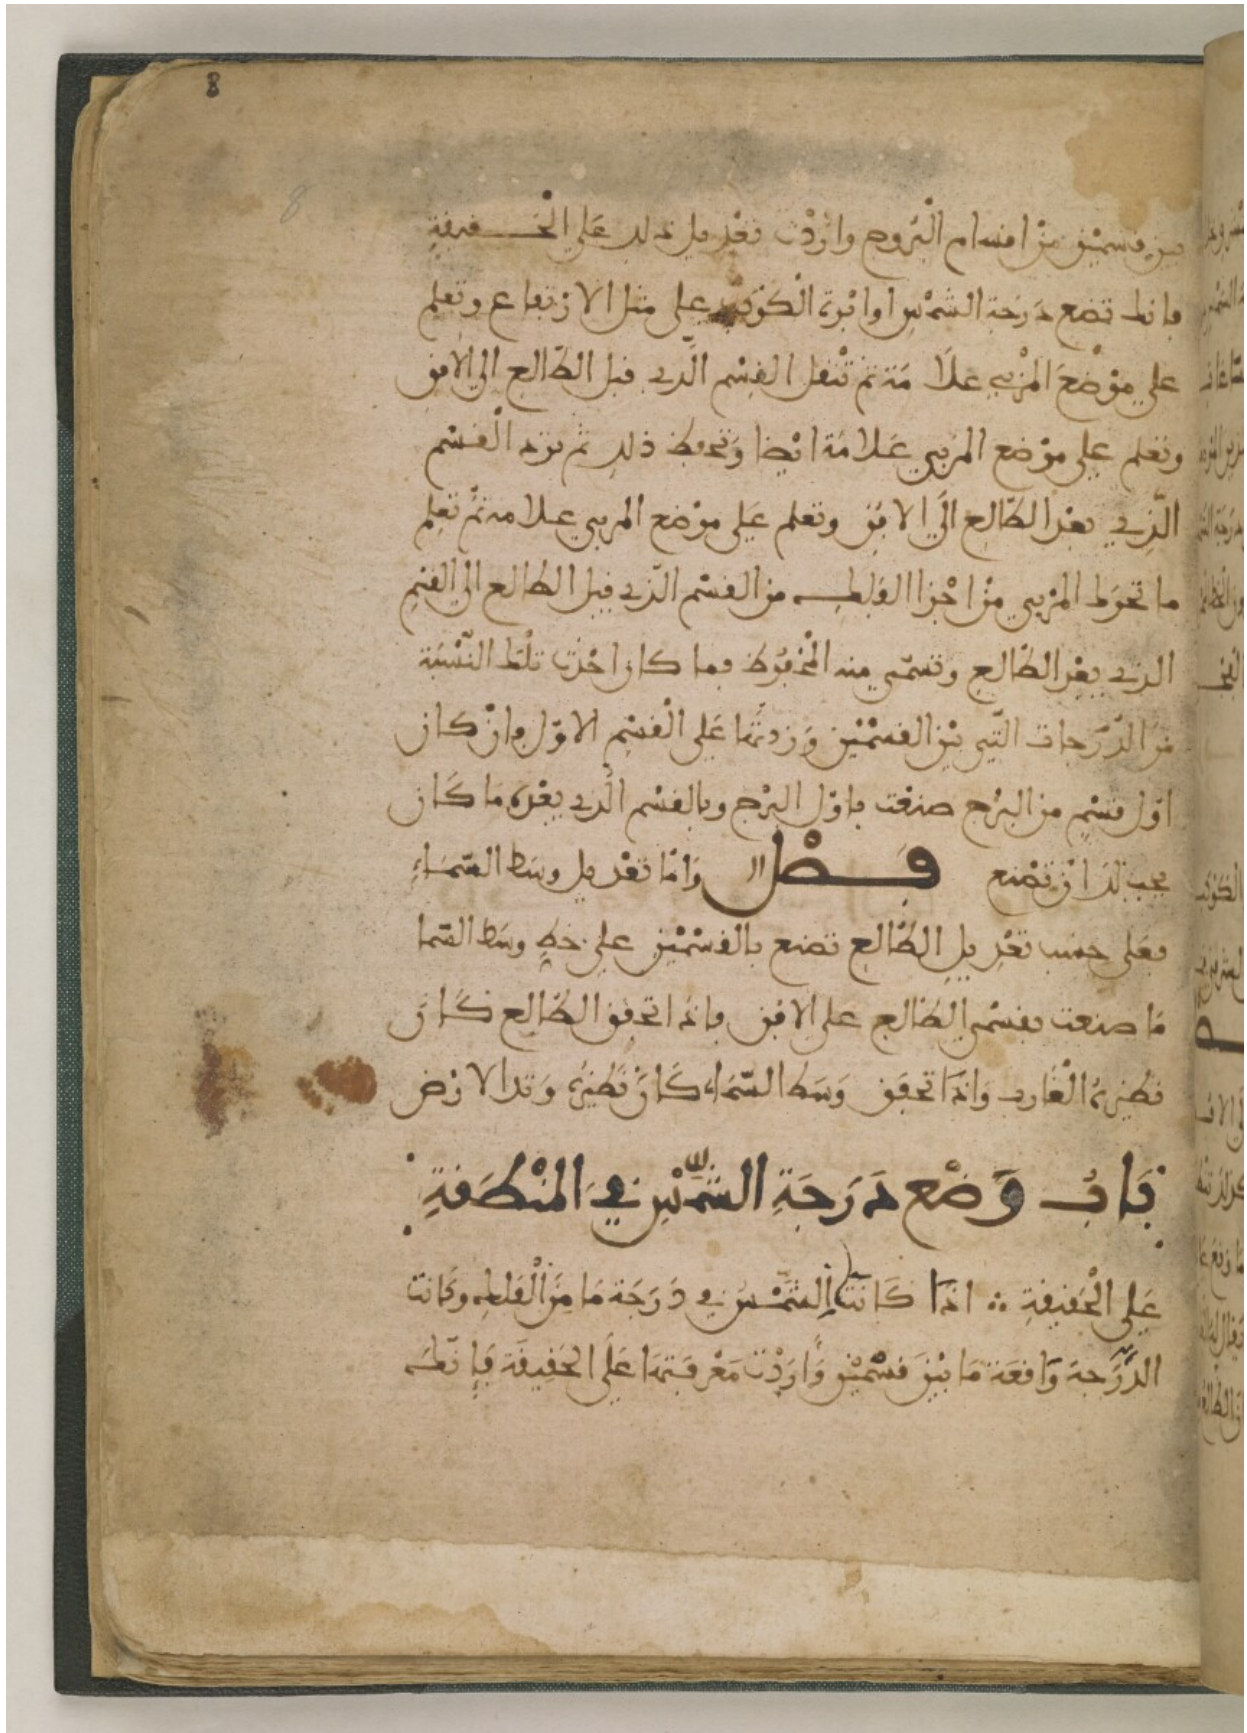 8
8
بين قسمين من اقسام الْبُروج واردْت تعْديل ذلك علي الْحـــقيقةِ
فانك تضع دَرَجة الشمْس او ابْرة الْكَوْكب علي مثل الارتفاع وتعلم
علي موْضعَ الْمرْيي علاَمَة ثم تنْقل القسْم الَّذي قبل الطَّالع الي الافق
وتعلم علي موْضع المريي عَلامَة ايْضا وَتحفظ ذلك ثم تردّ الْقسْم
الَّذِي بعْد الطَّالع الَي الافُق وتعلم عَلي موْضع المريي علامة ثمَّ تعلم
ما تحرك المرْيي منْ اجْزا الفلكـــ من القسْم الذي قبل الطالع الي القسْم
الذي بعْد الطَّالع وتسَمّي منه الْمحْفُوظ فما كان اخذت تلْك النّسْبَة
منَ الدَّرَجات الَّتِي بيْن القسْمَيْن وَزدتَّها عَلي الْقسْم الاوّل وانْ كان
اوّل قسْم من البرْج صنعْت باوّل البرْج وبالقسْم الَّذي بعْدَه مَا كَان
يجب لكَ انْ تصْنع فَــصْل وَامَّا تعْديل وسَط السَّمَاءِ
فعَلي حسَب تعْديل الطَّالع تصْنع بالقسْمَيْن علي خط وسَط السّما
مَا صنعت بقسْمي الطَّالع علي الافق فاذا تحقق الطَّالع كَانَ
نظيرهُ الْغَارب وَاذا تحقق وَسَط السَّمَاء كَانَ نظيرُه وَتد الارْض
بَابُ وَضْع دَرَجَةِ الشَّمْسِ في الْمنْطَقةِ
عَلي الْحَقيقةِ ∴ اذَا كَانَت الشَمْسُ في دَرَجَة مَا مِنَ الْفلك وكَانت
الدَّرَجة وَاقعَة مَا بيْنَ قسْميْن وَارَدْت مَعْرفتهَا عَلَي الحَقيقَة فَإنّكـ